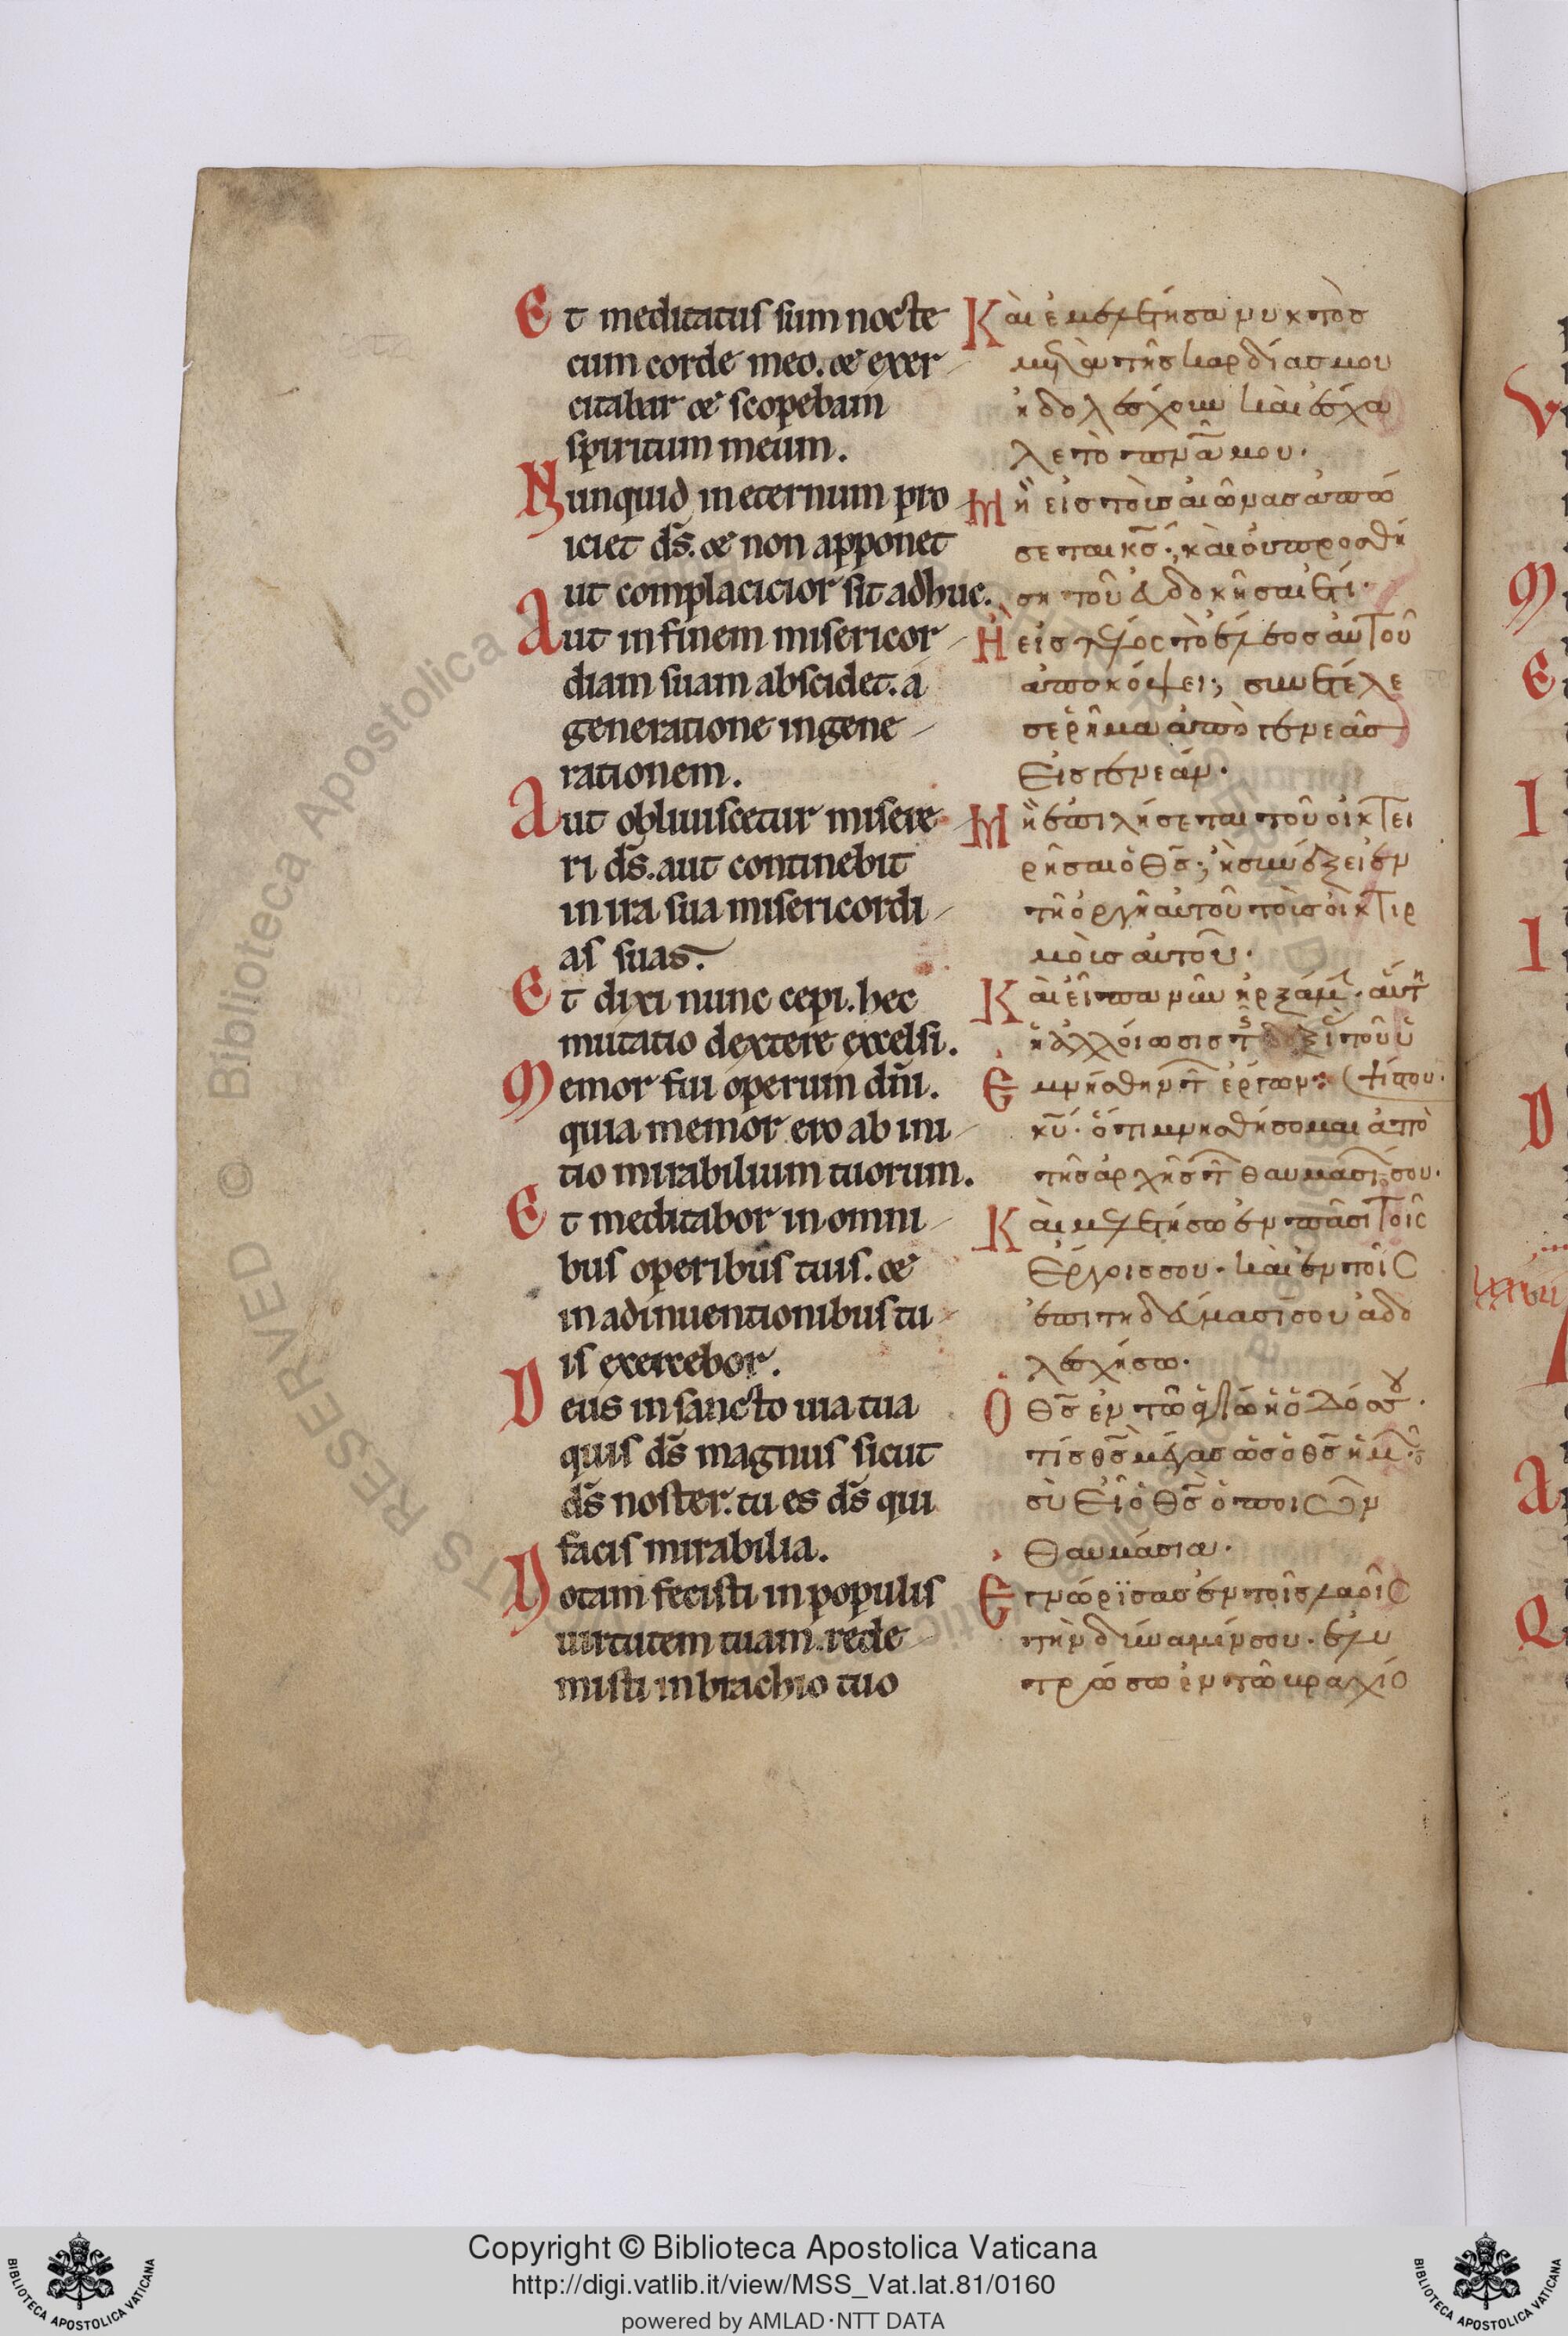 Et meditatus sum nocte
cum corde meo. & exer
citabar & scopebam
spiritum meum.
Nunquid in eternum pro
iciet d̅s. & non apponet
ut complacicior sit adhuc.
Aut in finem misericor
diam suam abscidet. a
generatione in gene
rationem.
Aut obliuiscetur misere
ri d̅s. aut continebit
in ira sua misericordi
as suas.
Et dixi nunc cepi. hec
mutatio dextere excelsi.
Memor fui operum dn̅i.
quia memor ero ab ini
tio mirabilium tuorum.
Et meditabor in omni
bus operibus tuis. &
in adinuentionibus tu
is exercebor.
Deus in sancto uia tua
quis d̅s magnus sicut
d̅s noster. tu es d̅s qui
facis mirabilia.
Notam fecisti in populis
uirtutem tuam. rede
misti in brachio tuo
Κὰι ἐμελέτησα νυκτὸσ
μετὰ τῆσ καρδίασ μου
ἠδολέσχουν κὰι ἔσκα
λε τὸ πν̅ά μου·
Μὴ εἰσ τὸισ αἰῶνασ ἀπώ
σεται κ̅σ̅· κὰι ὀυ προσθή
ση τοῦ ἐυδοκῆσαι ἔτι·
Ἢ εἰσ τέλος τὸ ἔλεοσ ἀυτοῦ
ἀποκόψει; συνετέλε
σε ῥῆμα ἀπὸ γενεᾶσ
εἰσ γενεάν·
Μὴ ἐπιλήσεται τοῦ οἰκτει
ρῆσαι ὁ θ̅σ̅; ἢ συνέξει ἐν
τῆ ὀργῆ ἀυτοῦ τὸισ ὀικτιρ
μὸισ ἀυτοῦ·
Κὰι εἶπα νῦν ἠρξάμ· ἅυτη
ἡ ἀλλόιωσισ τῆσ δεξιᾶ τοῦ ὑ
ψίστου·
Ἐμνήσθην τ̅ ἔργων
κ̅υ̅· ὅτι μνησθήσομαι ἀπὸ
τῆσ ἀρχῆσ τ̅ θαυμασί σου·
Κὰι μελετήσω ἐν πᾶσι τοῖς
ἔργοισ σου· κὰι ἐν τοῖς
ἐπιτηδεύμασί σου ἀδο
λεσχήσω·
Ὁ θ̅σ̅ ἐν τῶ ἁγίω ἡ ὁδόσ σου·
τίσ θ̅σ̅ μέγασ ὡσ ὁ θ̅σ̅ ἡμῶν·
σὺ εἶ ὁ θ̅σ̅ ὁ ποιῶν
θαυμάσια·
Ἐγνώρϊσασ ἐν τοῖσ λαοῖς
τὴν δύναμίν σου· ἐλυ
τρώσω ἐν τῶ βραχίο
Copyright © Biblioteca Apostolica Vaticana
http://digi.vatlib.it/view/MSS_Vat.lat.81/0160
powered by AMLAD·NTT DATA